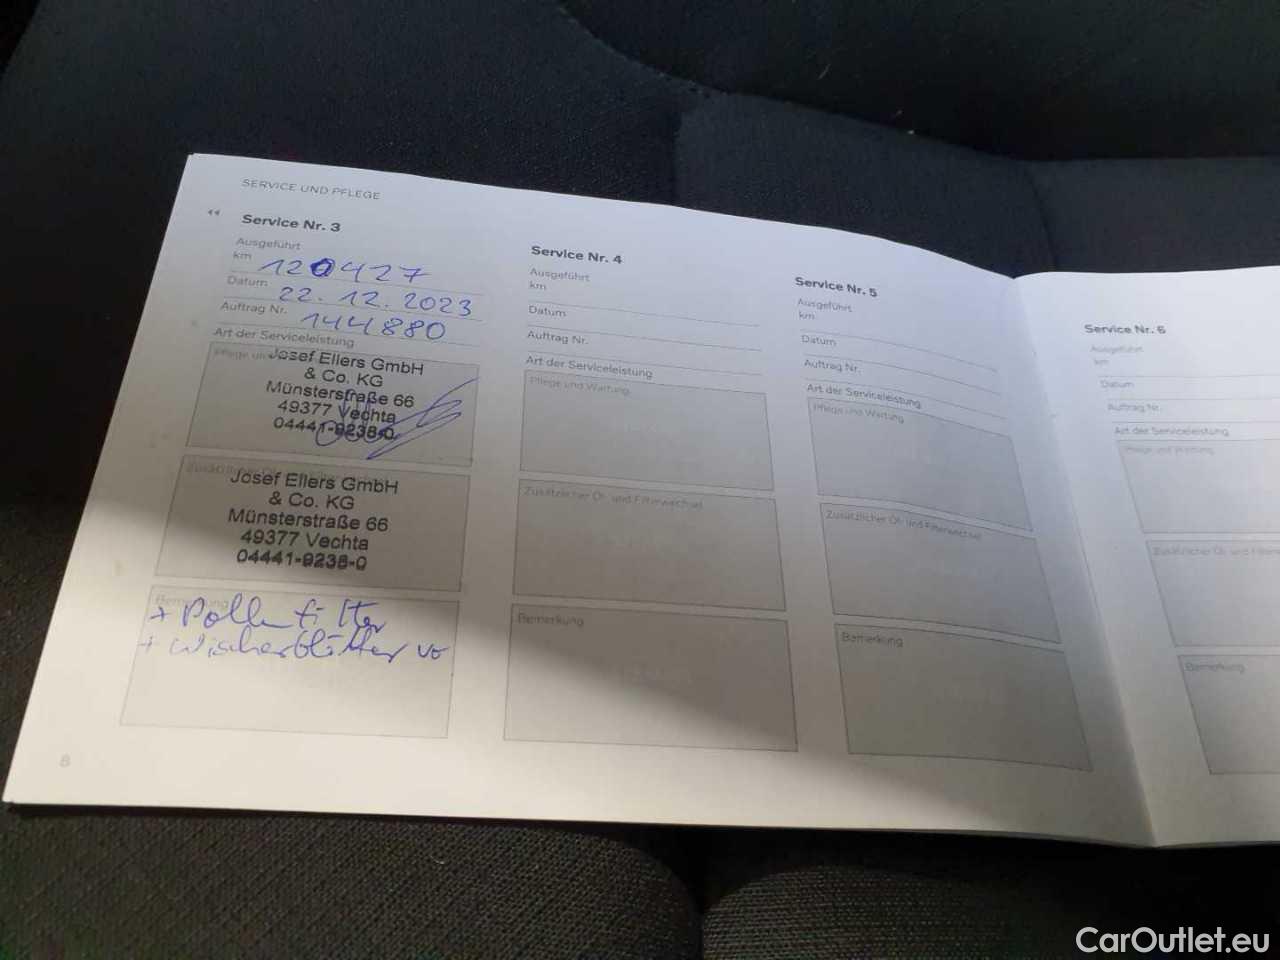 SERVICE UND PFLEGE
Service Nr. 3
Ausgeführt
km 120427
Datum 22.12.2023
Auftrag Nr. 144880
Art der Serviceleistung
Pflege un
Josef Ellers GmbH
& Co. KG
Münsterstraße 66
49377 Vechta
04441-9238-0
Zusätzlicher Öl-
Josef Ellers GmbH
& Co. KG
Münsterstraße 66
49377 Vechta
04441-9238-0
Bemerkung
+ Pollenfilter
+ Wischerblätter vo
8
Service Nr. 4
Ausgeführt
km
Datum
Auftrag Nr.
Art der Serviceleistung
Pflege und Wartung
Zusätzlicher Öl- und Filterwechsel
Bemerkung
Service Nr. 5
Ausgeführt
km
Datum
Auftrag Nr.
Art der Serviceleistung
Pflege und Wartung
Zusätzlicher Öl- und Filterwechsel
Bemerkung
Service Nr. 6
Ausgeführt
km
Datum
Auftrag Nr.
Art der Serviceleistung
Pflege und Wartung
Zusätzlicher Öl- und Filterw
Bemerkung
CarOutlet.eu